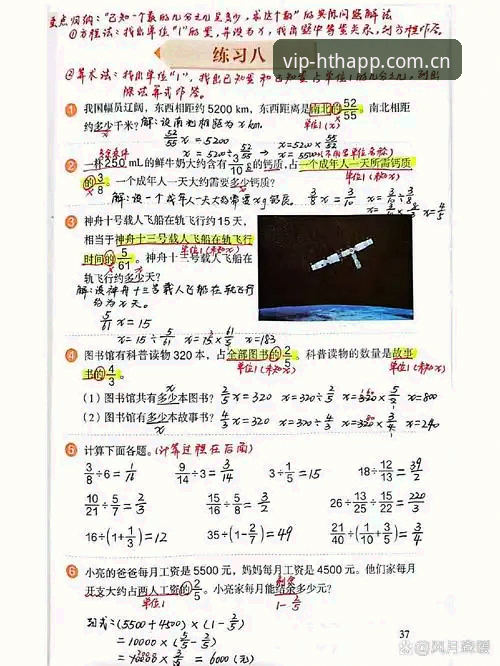 重点归纳："已知一个数的几分之几是多少，求这个数"的实际问题解法
①方程法：找出单位"1"的量，并设为x，找出题中等量关系，列方程解答。
练习八
vip-hthapp.com.cn
②算术法：找出单位"1"，找出已知量和已知量占单位1的几分之几，列出
除法算式解答。
① 我国幅员辽阔，东西相距约 5200 km，东西距离是南北的52/55。南北相距
单位1(x)
约多少千米？解：设南北相距为x km.
52/55 x = 5200
x = 5200÷52/55 → x = 5200×55/52
x = 5500
② 一杯 250 mL 的鲜牛奶大约含有3/10 g的钙质，占一个成年人一天所需钙质
单位1(未知x)
的3/8。一个成年人一天大约需要多少钙质？
3/8 x = 3/10 x = 3/10÷3/8
解：设一个成年人一天大约需要xg钙质。
x = 4/5
③ 神舟十号载人飞船在轨飞行约 15 天，
相当于神舟十三号载人飞船在轨飞行
单位1(未知x)
时间的5/61。神舟十三号载人飞船在
轨飞行约多少天？
解：设神舟十三号载人飞船在轨飞行
约为x天。
5/61 x = 15
x = 15÷5/61 x = 15×61/5 x = 183
④ 图书馆有科普读物 320 本，占全部图书的2/5。科普读物的数量是故事
单位1(未知x) 单位1(未知x)
书的4/3。
x
（1）图书馆共有多少本图书？ 2/5 x = 320 x = 320÷2/5 x = 320×5/2 x = 800
（2）图书馆有多少本故事书？ 4/3 x = 320 x = 320÷4/3 x = 320×3/4 x = 240
x
⑤ 计算下面各题。(计算过程在后面)
3/8÷6 = 1/16 9/14÷3 = 3/14 3÷1/5 = 15 18÷12/13 = 39/2
10/21÷5/7 = 2/3 15/16÷5/8 = 3/2 26÷13/25÷15/22 = 220/3
16÷(1+1/3) = 12 35÷(1-2/7) = 49 21/40÷(1/10+3/5) = 3/4
⑥ 小亮的爸爸每月工资是 5500 元，妈妈每月工资是 4500 元。他们家每月
剩余
开支大约占两人工资的2/5。小亮家每月能结余多少元？
单位1 1-2/5
列式：(5500+4500)×(1-2/5)
=10000×(5/5-2/5)
=10000×3/5 = 6000 (元)
37